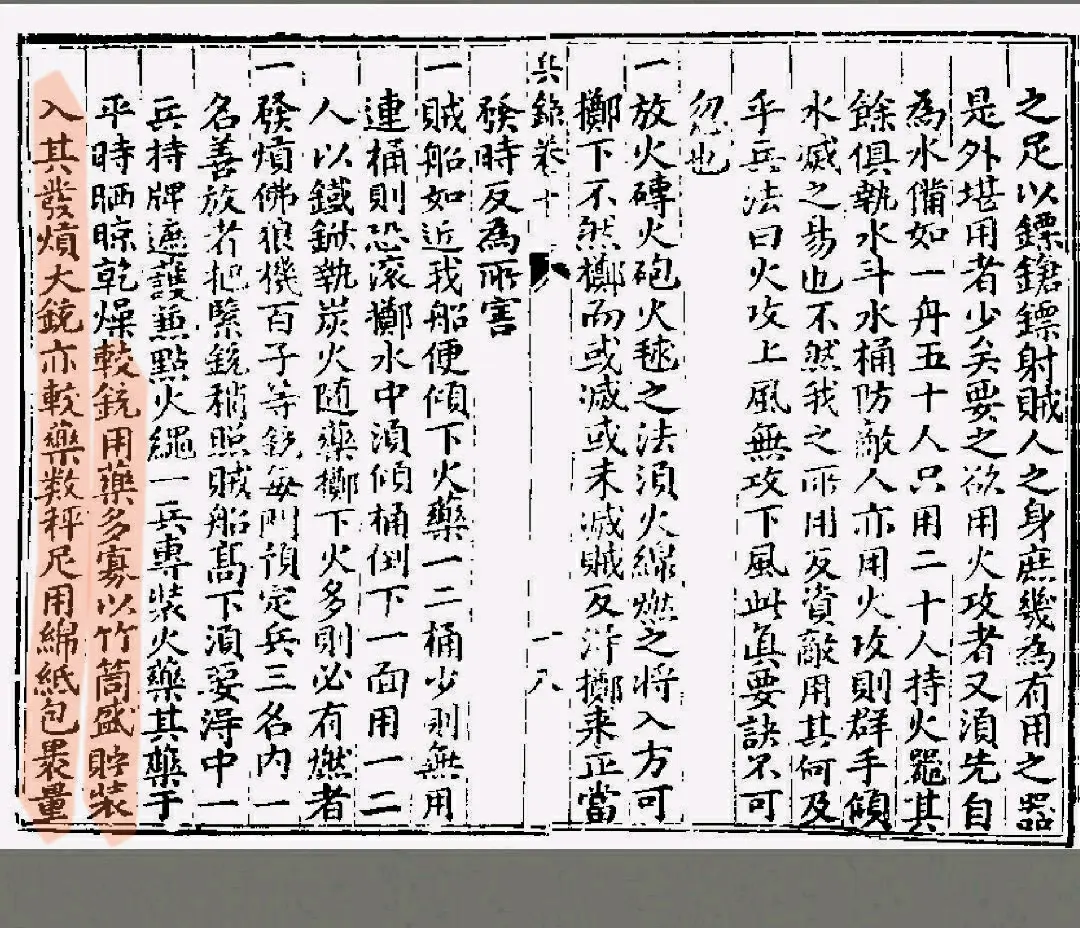 之足以鏢鎗鏢射賊人之身庶幾為有用之器
是外堪用者少矣要之欲用火攻者又須先自
為水備如一舟五十人只用二十人持火器其
餘俱執水斗水桶防敵人亦用火攻則群手傾
水滅之易也不然我之所用反資敵用其何及
乎兵法曰火攻上風無攻下風此真要訣不可
忽也
一放火磚火砲火毬之法須火線燃之將入方可
擲下不然擲而或滅或未滅賊反拜擲来正當
兵錄卷十
一八
發時反為所害
一賊船如近我船便傾下火藥一二桶少則無用
連桶則恐滾擲水中須傾桶倒下一面用一二
人以鐵鍬執炭火随藥擲下火多則必有燃者
一發熕佛狼機百子等銃每門預定兵三名内一
名善放者把緊銃稍照賊船高下須要得中一
兵持牌遮護兼點火繩一兵專装火藥其藥于
平時晒晾乾燥較銃用藥多寡以竹筒盛貯装
入其發熕大銃亦較藥数秤足用綿紙包裹量